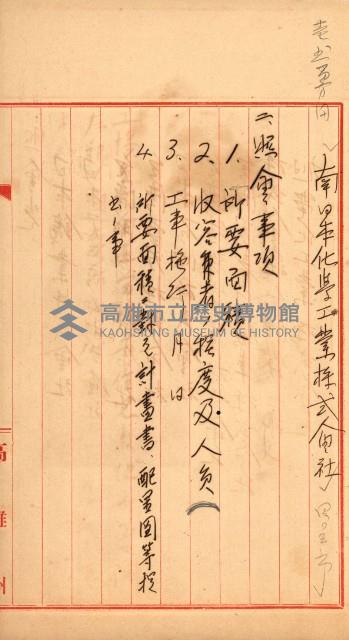 南日本化學工業株式會社
二、照會事項
1. 所要面積
2. 收容 者程度及人員
3. 工事施行月日
4. 所要面積 計畫書、配置圖等提
出ノ事
高雄州
高雄市立歷史博物館
KAOHSIUNG MUSEUM OF HISTORY